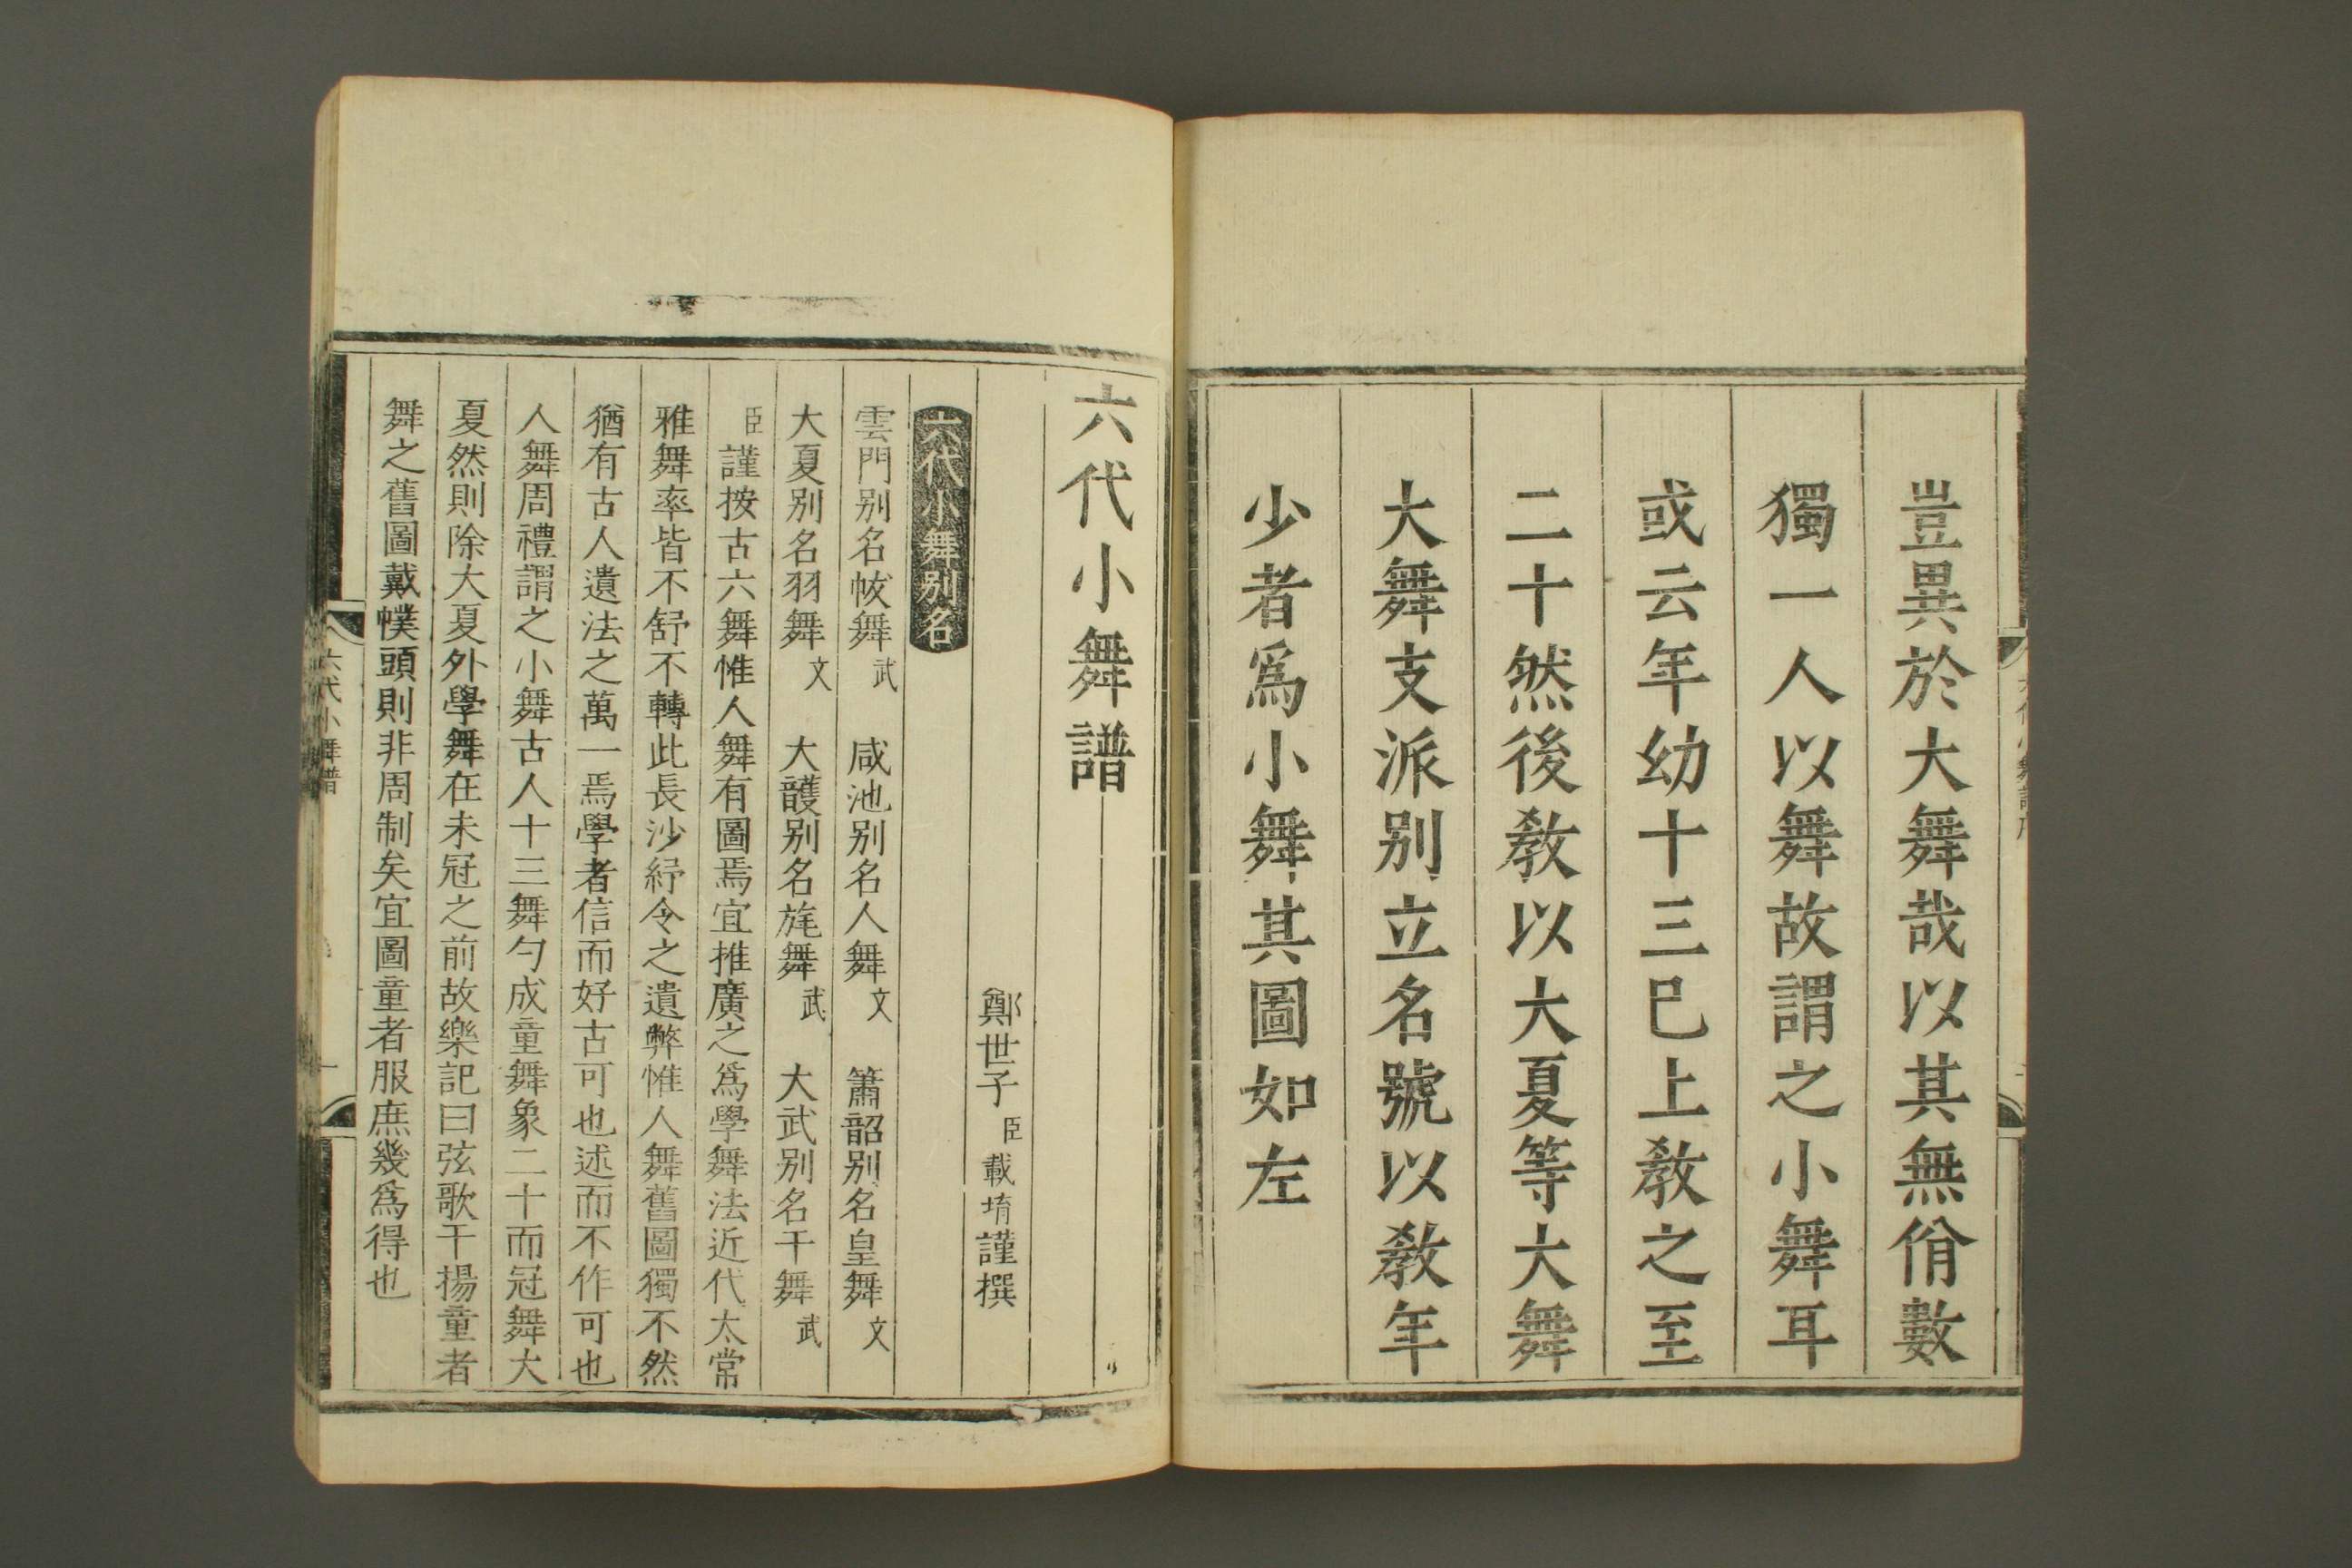 豈異於大舞哉以其無佾數
獨一人以舞故謂之小舞耳
或云年幼十三已上教之至
二十然後教以大夏等大舞
大舞支派别立名號以教年
少者爲小舞其圖如左
六代小舞譜
鄭世子臣載堉謹撰
六代小舞别名
雲門别名帗舞武 咸池别名人舞文 簫韶别名皇舞文
大夏别名羽舞文 大頀别名旄舞武 大武别名干舞武
臣謹按古六舞惟人舞有圖焉宜推廣之爲學舞法近代太常
雅舞率皆不舒不轉此長沙紓令之遺弊惟人舞舊圖獨不然
猶有古人遺法之萬一焉學者信而好古可也述而不作可也
人舞周禮謂之小舞古人十三舞勺成童舞象二十而冠舞大
夏然則除大夏外學舞在未冠之前故樂記曰弦歌干揚童者
舞之舊圖戴幞頭則非周制矣宜圖童者服庶幾爲得也
六代小舞譜
一